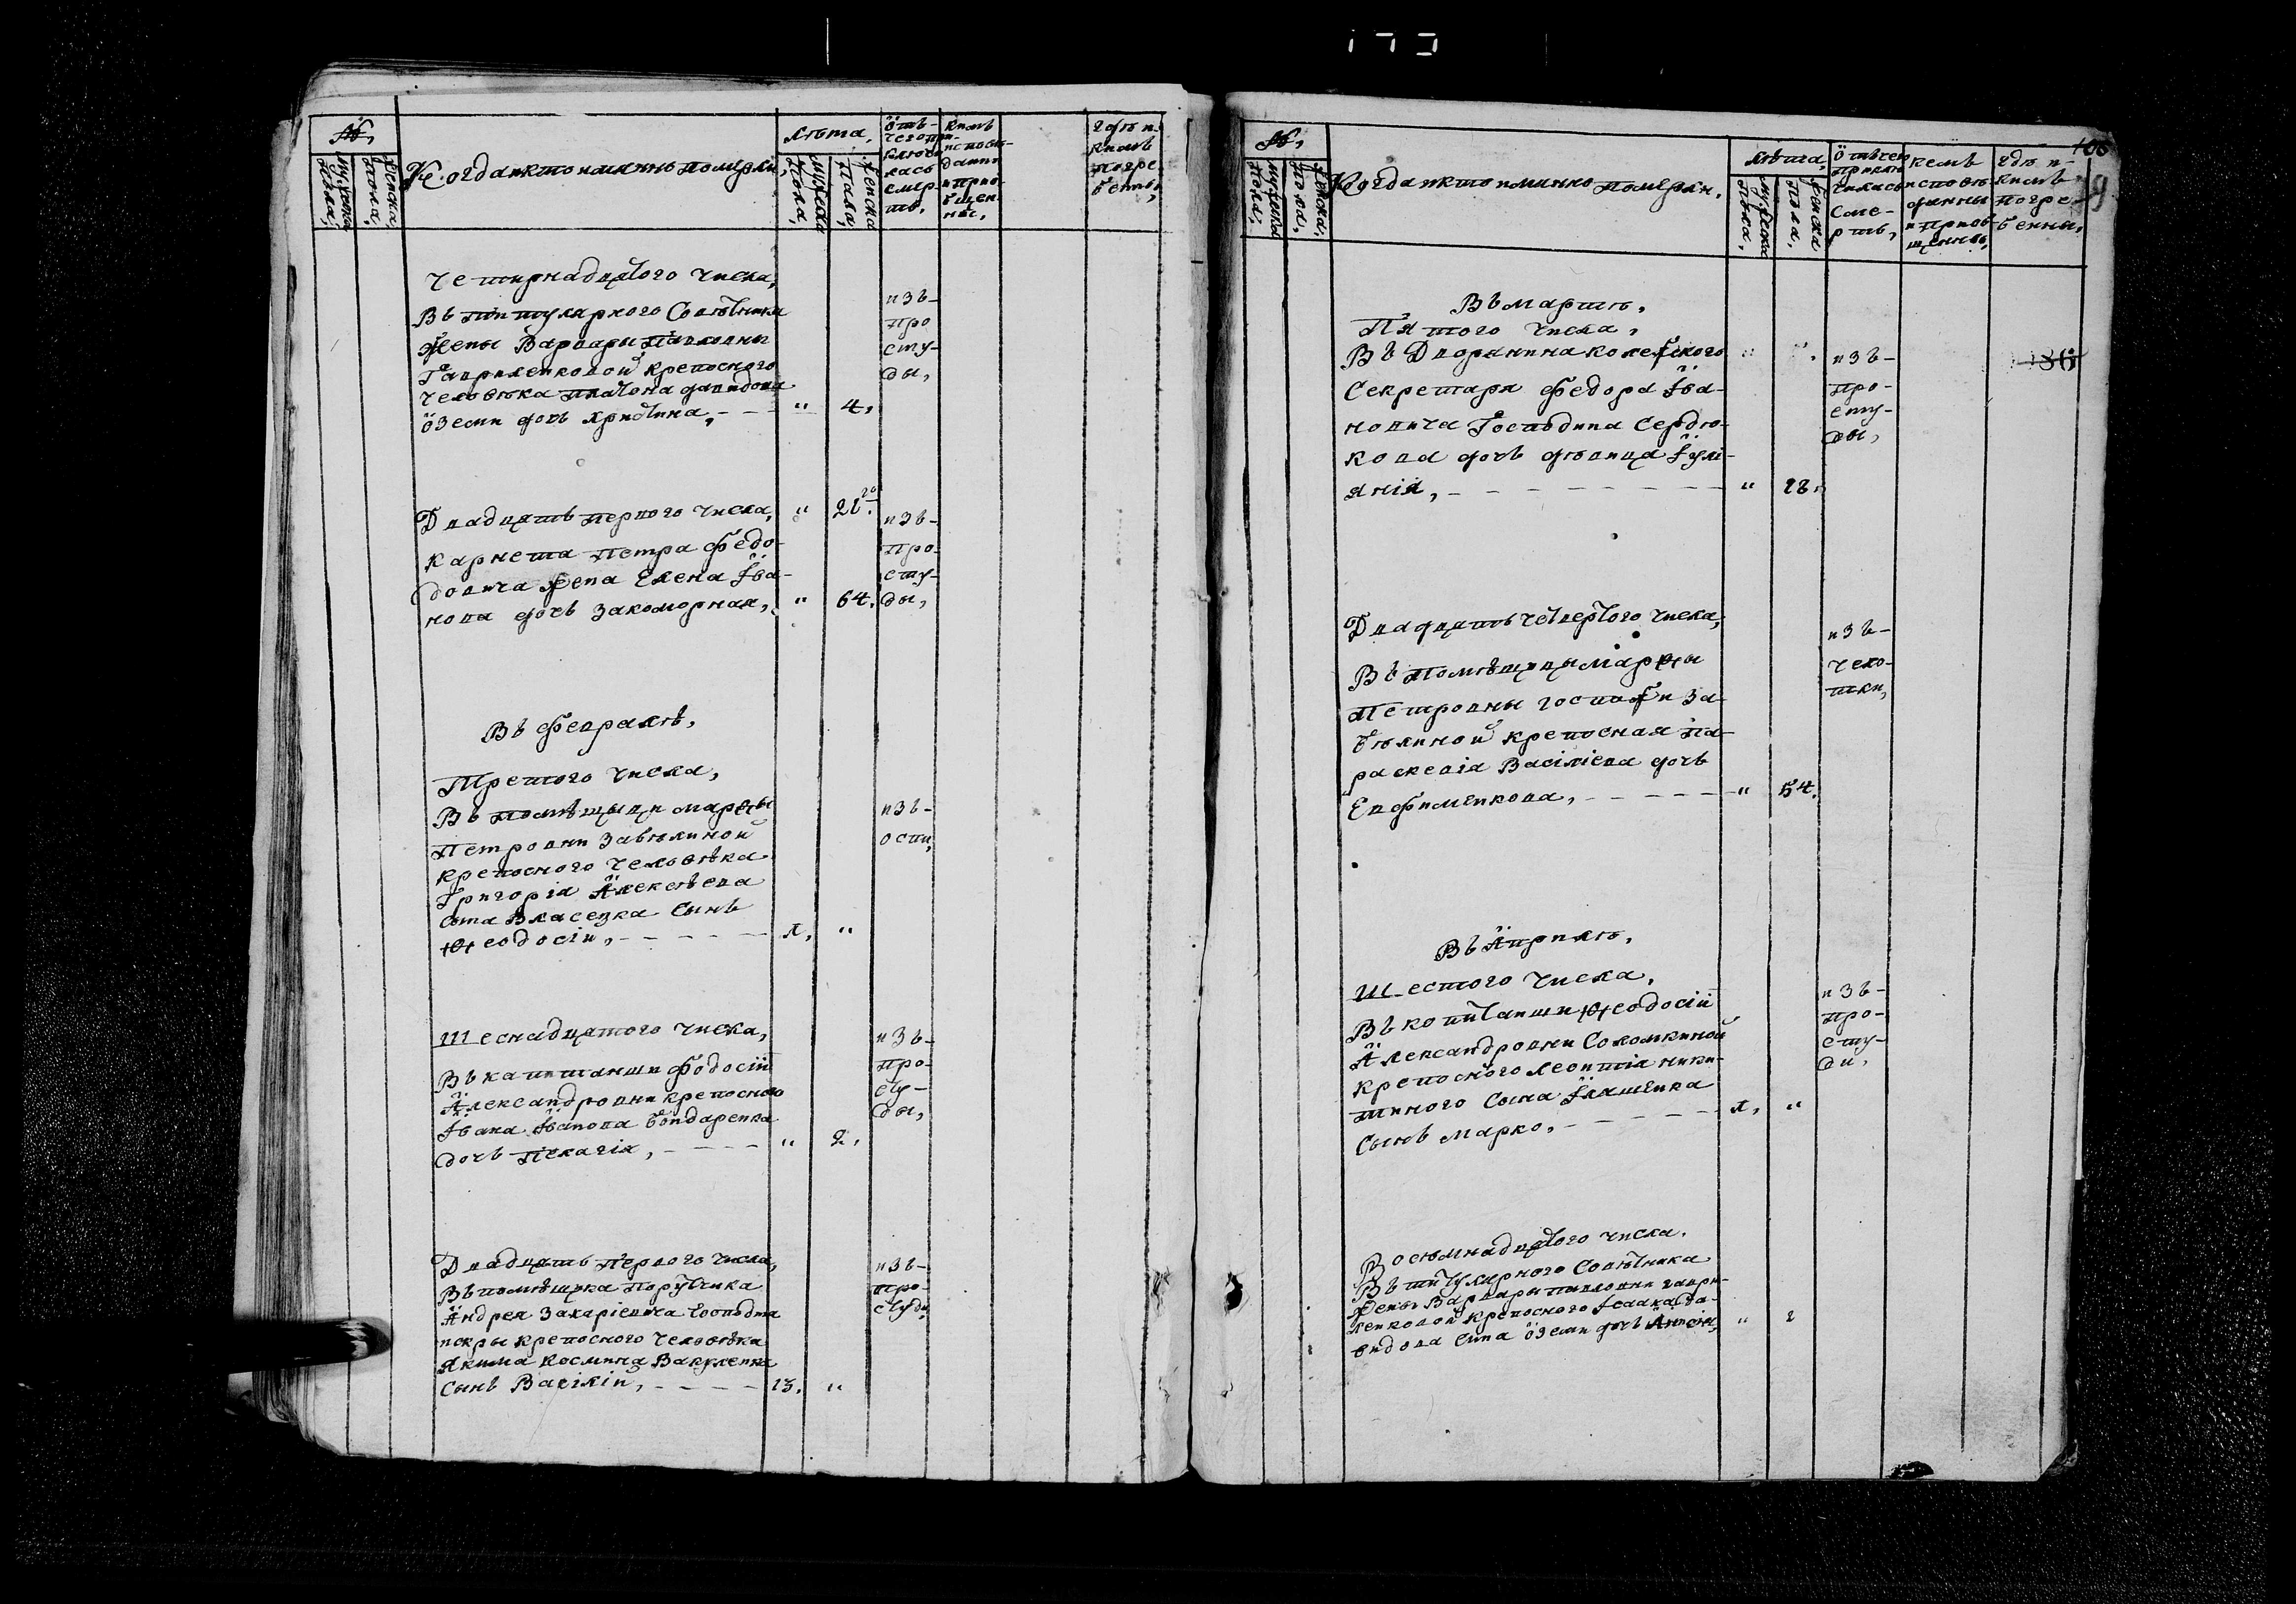 №,
мужеска пола,
женска, пола,
Когда и кто имянно померли,
лѣта,
мужеска пола,
женска пола,
ѿ чего приключилась смерть,
кѣмъ исповѣданы и приобщены,
гдѣ и кѣмъ погребены,
Четырнадцятого числа,
Въ титулярного Совѣтника
жены Варвары Павловны
Гавриленковой крепосного
человѣка Платона Давидова
Оземи дочь Христина, - - - " 4,
изъ-
про
сту-
ды,
Двадцять первого числа, " 21.
Карнета Петра Федо-
довича жена Елена Іва-
нова дочь Закоморная, " 64.
изъ-
про-
сту-
ды,
Въ Февралѣ,
Третого числа,
Въ помѣщыци Марѳы
Петровни Забѣлиной
крепосного человѣка
Григорія Алексѣева
сына Власенка Сынъ
Ѳеодосій, - - - - - 1, "
изъ-
оспи,
Шеснадцятого числа,
Въ капитанши Фодосіи
Александровни крепосного
Івана Іванова Бондаренка
дочь Пелагія, - - - - " 2,
изъ-
про-
сту-
ды,
Двадцять Первого числа,
Въ помѣщика Порутчика
Андрея Захаріевича господина
искры крепосного человѣка
Якима Космина Вакуленка
Сынъ Васілій, - - - - - 13. "
изъ-
про-
студи,
№,
мужеска пола,
женска, пола,
Когда и кто имянно померли,
лѣта,
мужеска пола,
женска пола,
ѿ чего приключилась смерть,
кемъ исповѣданны и приобщенны,
гдѣ и кѣмъ погребенны,
106
Въ Мартѣ,
Пятого числа,
Въ Дворянина колежского
Секретаря Федора Іва-
новича Господина Сердю-
кова дочь дѣвица Іулі-
янія, - - - - - - - - " 18.
изъ-
про-
сту-
ды,
86
Двадцять четвертого числа,
Въ помѣщицы Марѳы
Петровны госпожи За-
бѣлиной крепосная Па-
раскевія Васілієва дочь
Евфименкова, - - - - - - " 54.
изъ-
чахо-
тки,
Въ Априлѣ,
Шестого числа,
Въ копитанши Ѳеодосіи
Александровни Соломкиной
крепосного Леонтія Ники-
тиного сына Іляшенка
Сынъ Марко, - - - - - - 1, "
изъ-
про-
сту-
ди,
Восемнадцятого числа.
Въ титулярного Совѣтника
жены Варвары Павловни Гаври-
ленковой крепосного Ісаака Да-
видова сина Оземи дочь " 2